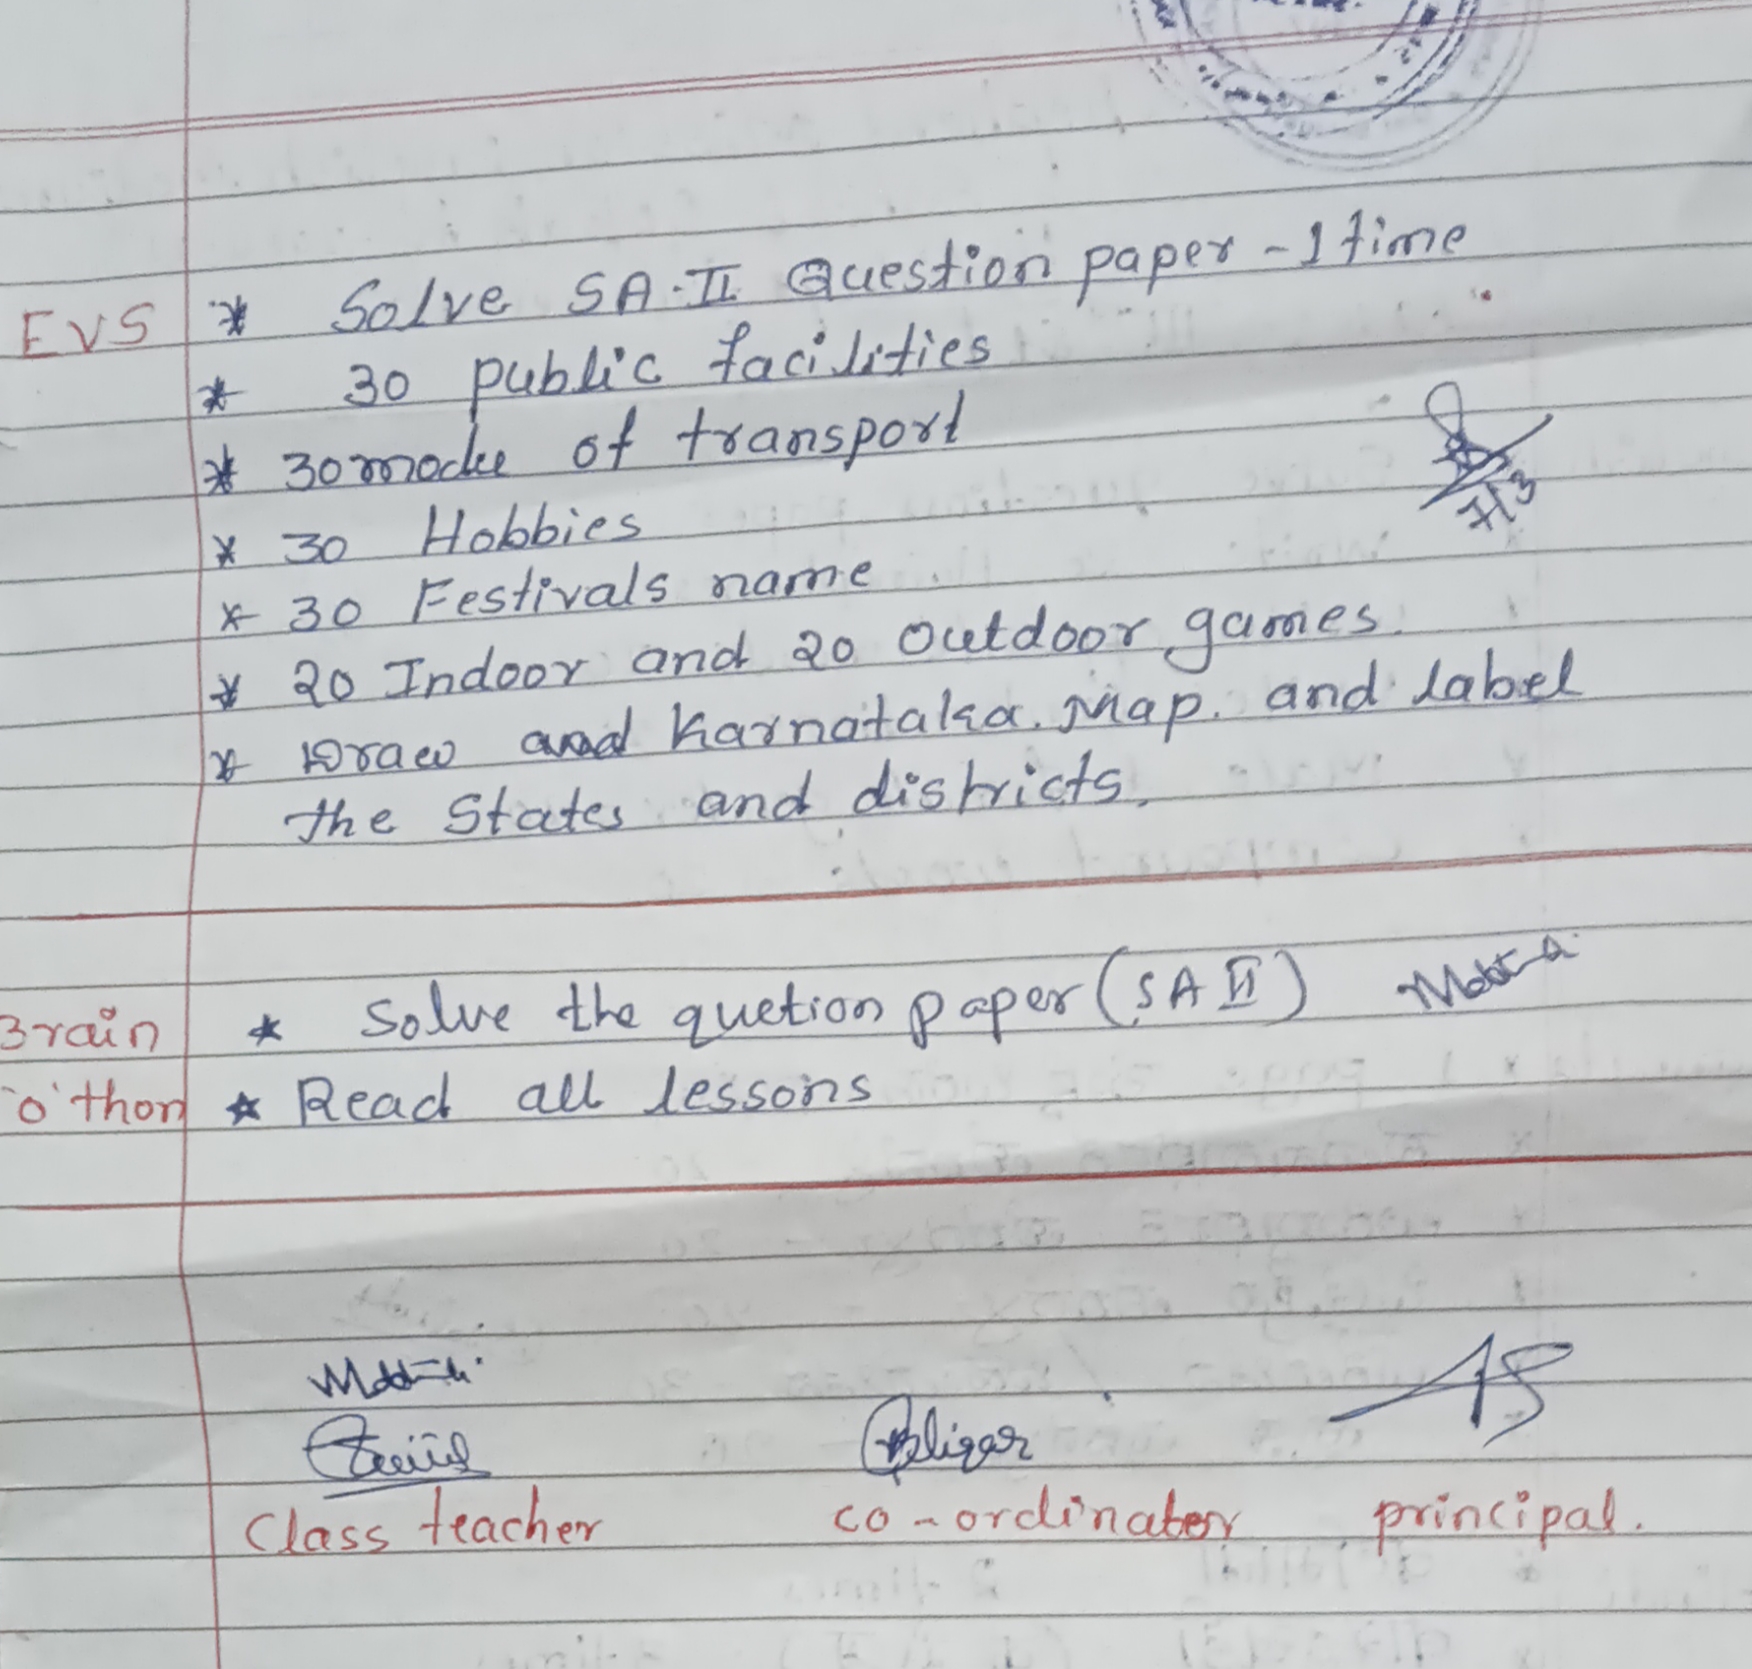 EVS * Solve SA-II Question paper - 1 time
* 30 public facilities
* 30 mode of transport
* 30 Hobbies
7/3
* 30 Festivals name
* 20 Indoor and 20 outdoor games.
* Draw and Karnataka. Map. and label
the States and districts.
Brain * Solve the quetion paper (SA II)
'o' thon * Read all lessons
Class teacher co-ordinator principal.